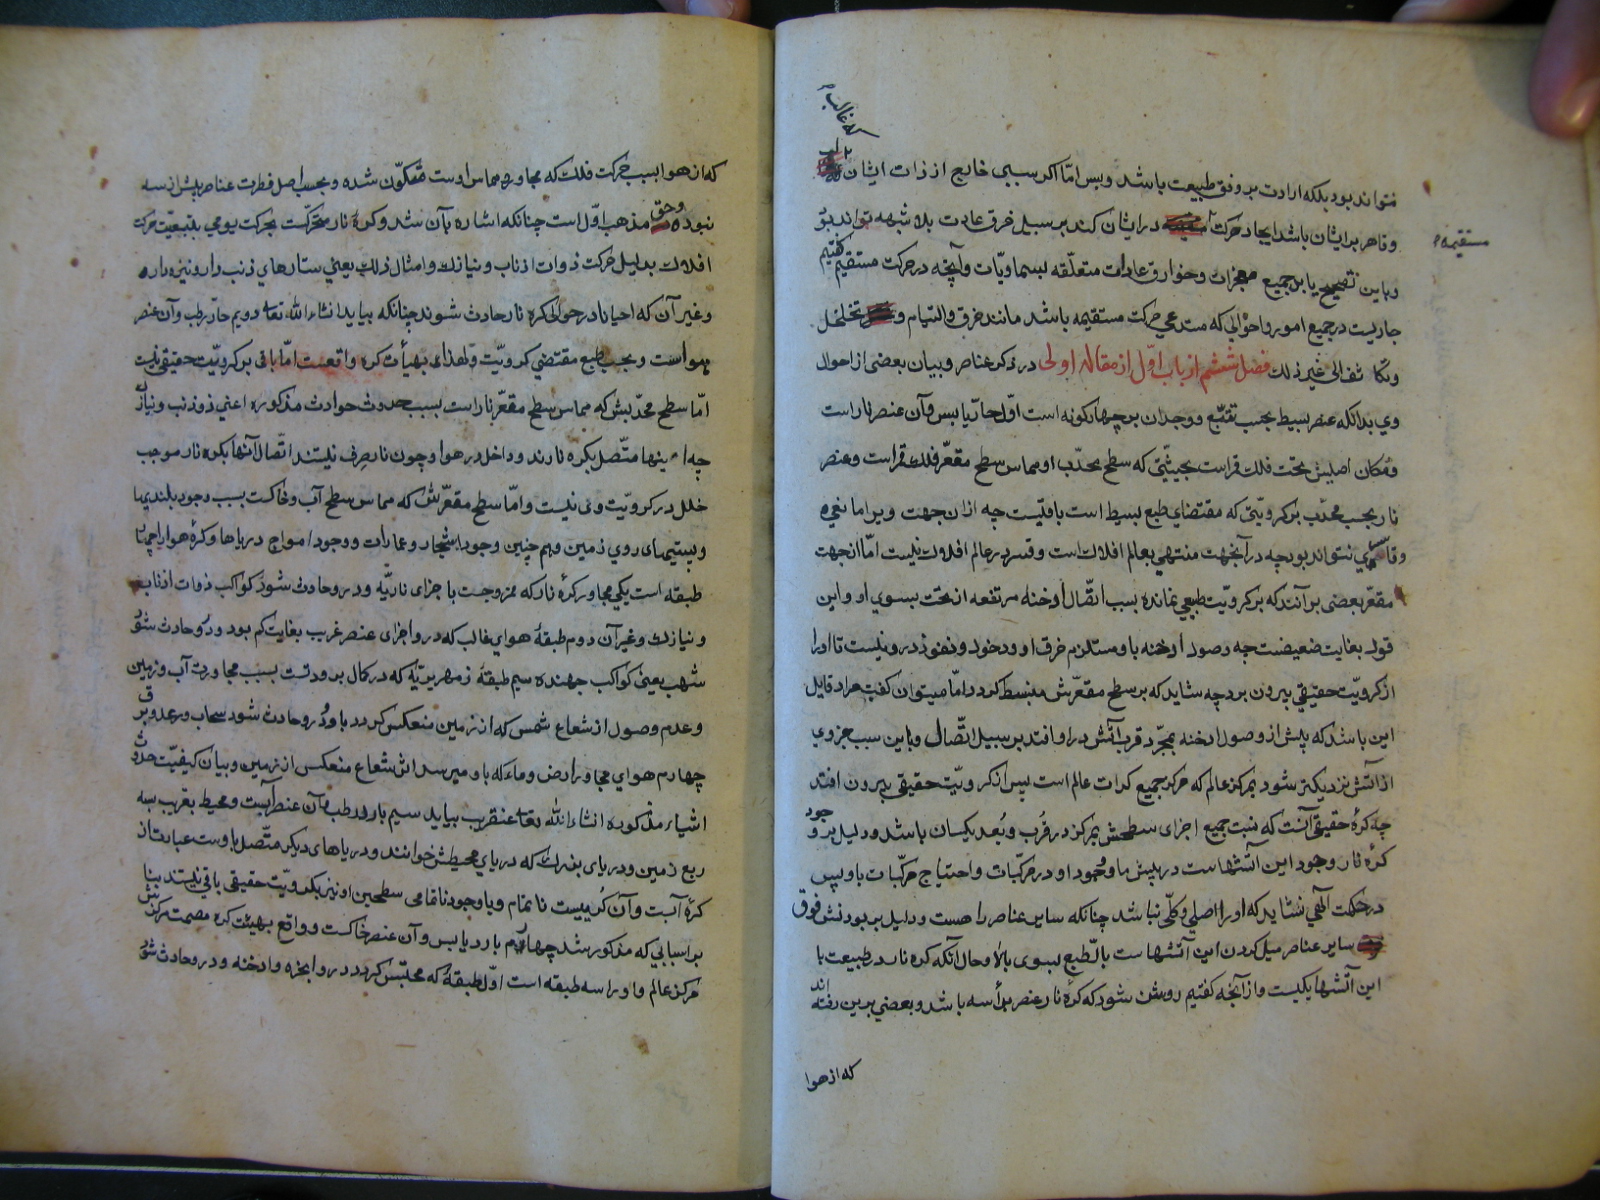 که غالب
نتواند بود بلکه ارادت بر وفق طبیعت باشد و بس امّا اکر سببی خارج از ذات ایشان
مستقیمه
و قاهر بر ایشان باشد ایجاد حرکت در ایشان کند بر سبیل خرق عادت بلا شبهه تواند بو
و باین تصحیح یابد جمیع معجزات و خوارق عادات متعلّقه بسماویّات و آنچه در حرکت مستقیم کفتیم
جاریست در جمیع امور و احوالی که مستدعی حرکت مستقیمه باشد مانند خرق و التیام و تخلخل
و تکاثف الی غیر ذلك فصل ششم از باب اوّل از مقاله اولی در ذکر عناصر و بیان بعضی از احوال
وی بدانکه عنصر بسیط بحسب تتبّع و وجدان بر چهار کونه است اوّل حارّ یابس و آن عنصر نار است
و مکان اصلیش تحت فلك قمر است بحیثیّتی که سطح محدّب او مماس سطح مقعّر فلك قمر است و عنصر
نار بحسب محدّب بر کرویّتی که مقتضای طبع بسیط است باقیست چه از ان جهت ویرا مانعی
و قاسری نتواند بود چه در آنجهت منتهی بعالم افلاك است و قسر در عالم افلاك نیست امّا از جهت
مقعّر بعضی بر آنند که بر کرویّت طبیعی نمانده بسبب اتّصال ادخنه مرتفعه از تحت بسوی او و این
قول بغایت ضعیفست چه وصول ادخنه باو مستلزم خرق او و دخول و نفوذ در و نیست تا او را
از کرویّت حقیقی بیرون برد چه شاید که بر سطح مقعّرش منبسط کردد امّا میتوان کفت مراد قایل
این باشد که پیش از وصول ادخنه بمجرّد قرب آتش در او افتد بر سبیل اتّصال و باین سبب جزوی
از آتش نزدیکتر شود بمرکز عالم که مرکز جمیع کرات عالم است پس از کرویّت حقیقی بیرون افتد
چه کرۀ حقیقی آنست که نسبت جمیع اجزای سطحش بمرکز در قُرب و بُعد یکسان باشد و دلیل بر وجود
کرۀ نار وجود این آتشهاست در پیش ما و وجود او در مرکّبات و احتیاج مرکّبات باو پس
در حکمت آلهی نشاید که او را اصلی و کلّی نباشد چنانکه سایر عناصر را هست و دلیل بر بودنش فوق
سایر عناصر میل کردن این آتشهاست بالطّبع بسوی بالا و حال آنکه کره نار در طبیعت با
این آتشها یکیست و از آنچه کفتیم روشن شود که کرۀ نار عنصر برأسه باشد و بعضی برین رفته اند
که از هوا
که از هوا بسبب حرکت فلك که مجاوره مماس اوست متکوّن شده و بحسب اصل فطرت عناصر بیش از سه
نبوده و حق مذهب اوّل است چنانکه اشاره بآن شد و کرۀ نار متحرّکست بحرکت یومی بتبعیّت حرکت
افلاك بدلیل حرکت ذوات اذناب و نیازك و امثال ذلك یعنی ستارهای ذنب دار و نیزه دار
و غیر آن که احیانا در حوالی کره نار حادث شوند چنانکه بیاید انشاء الله تعا دویم حارّ رطب و آن عنصر
هواست و بحسب طبع مقتضی کرویّت و لهذا بهیأت کره واقعست امّا باقی بر کرویّت حقیقی نیست
امّا سطح محدّبش که مماس سطح مقعّر نار است بسبب حدوث حوادث مذکوره اعنی ذو ذنب و نیازك
چه اینها متّصل بکره نارند و داخل در هوا و چون نار صرف نیستند اتّصال آنها بکره نار موجب
خلل در کرویّت وی نیست و امّا سطح مقعّرش که مماس سطح آب و خاکست بسبب وجود بلندیها
و پستیهای روی زمین و هم چنین وجود اشجار و عمارات و وجود امواج دریاها و کرۀ هوا را چهار
طبقه است یکی مجاور کرۀ نار که ممزوجست باجزای ناریّه و در و حادث شوند کواکب ذوات اذناب
و نیازك و غیر آن دوم طبقۀ هوای غالب که در و اجزای عنصر غریب بغایت کم بود و در و حادث شو
شهب یعنی کواکب جهنده سیم طبقۀ زمهریریّه که در کمال برودتست بسبب مجاورت آب و زمین
و عدم وصول از شعاع شمس که از زمین منعکس کردد باو و در و حادث شود سحاب و رعد و برق
چهارم هوای مجاور ارض و ماء که باو میرسد اثر شعاع منعکس از زمین و بیان کیفیّت حدوث
اشیاء مذکوره انشاء الله تعا عنقریب بیاید سیم بارد رطب و آن عنصر آبست و محیط بقریب سه
ربع زمین و دریای بزرك که دریای محیطش خوانند و دریاهای دیکر متّصل باوست عبارت از
کرۀ آبست و آن کُرییست ناتمام و باوجود ناتمامی سطحین او نیز بکرویّت حقیقی باقی نیستند بنا
بر اسبابی که مذکور شد چهارم بارد یابس و آن عنصر خاکست و واقع بهیئت کره مصمت مرکزش
مرکز عالم و او را سه طبقه است اوّل طبقۀ که محتبس کردد در و ابخره و ادخنه و در و حادث شو